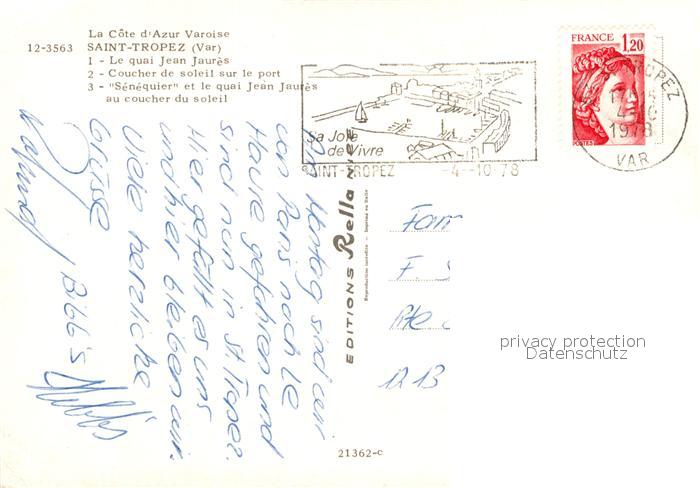 La Côte d'Azur Varoise
12-3563 SAINT-TROPEZ (Var)
1 - Le quai Jean Jaurès
2 - Coucher de soleil sur le port
3 - "Sénéquier" et le quai Jean Jaurès
au coucher du soleil
Sa Joie
de Vivre
SAINT-TROPEZ -4-10-78
FRANCE 1,20
POSTES
TROPEZ
1978
VAR
Am Montag sind wir
von Paris nach Le
Havre gefahren und
sind nun in St Tropez.
Hier gefällt es uns
und hier bleiben wir.
Viele herzliche
Grüsse
EDITIONS Rella NICE
Reproduction interdite - Imprimé en Italie
Fam
F. S
1213
privacy protection
Datenschutz
21362-c